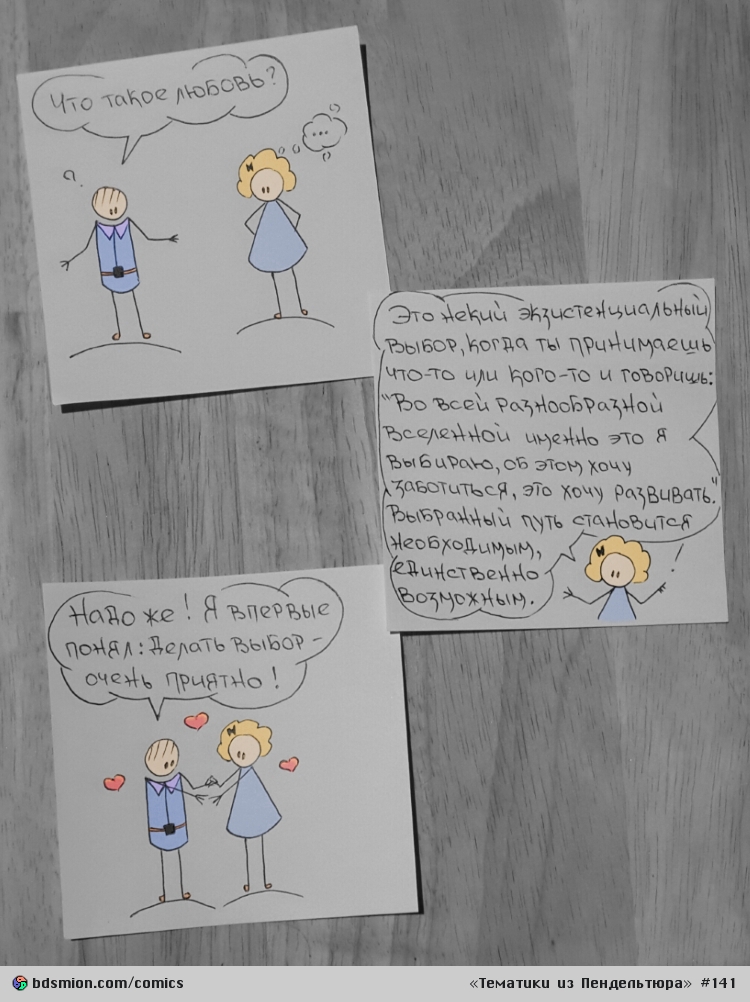 Что такое любовь?
?
...
Это некий экзистенциальный
выбор, когда ты принимаешь
что-то или кого-то и говоришь:
"Во всей разнообразной
вселенной именно это я
выбираю, об этом хочу
заботиться, это хочу развивать."
Выбранный путь становится
необходимым,
единственно
возможным.
!
Надо же! Я впервые
понял: делать выбор –
очень приятно!
bdsmion.com/comics
«Тематики из Пендельтюра» #141